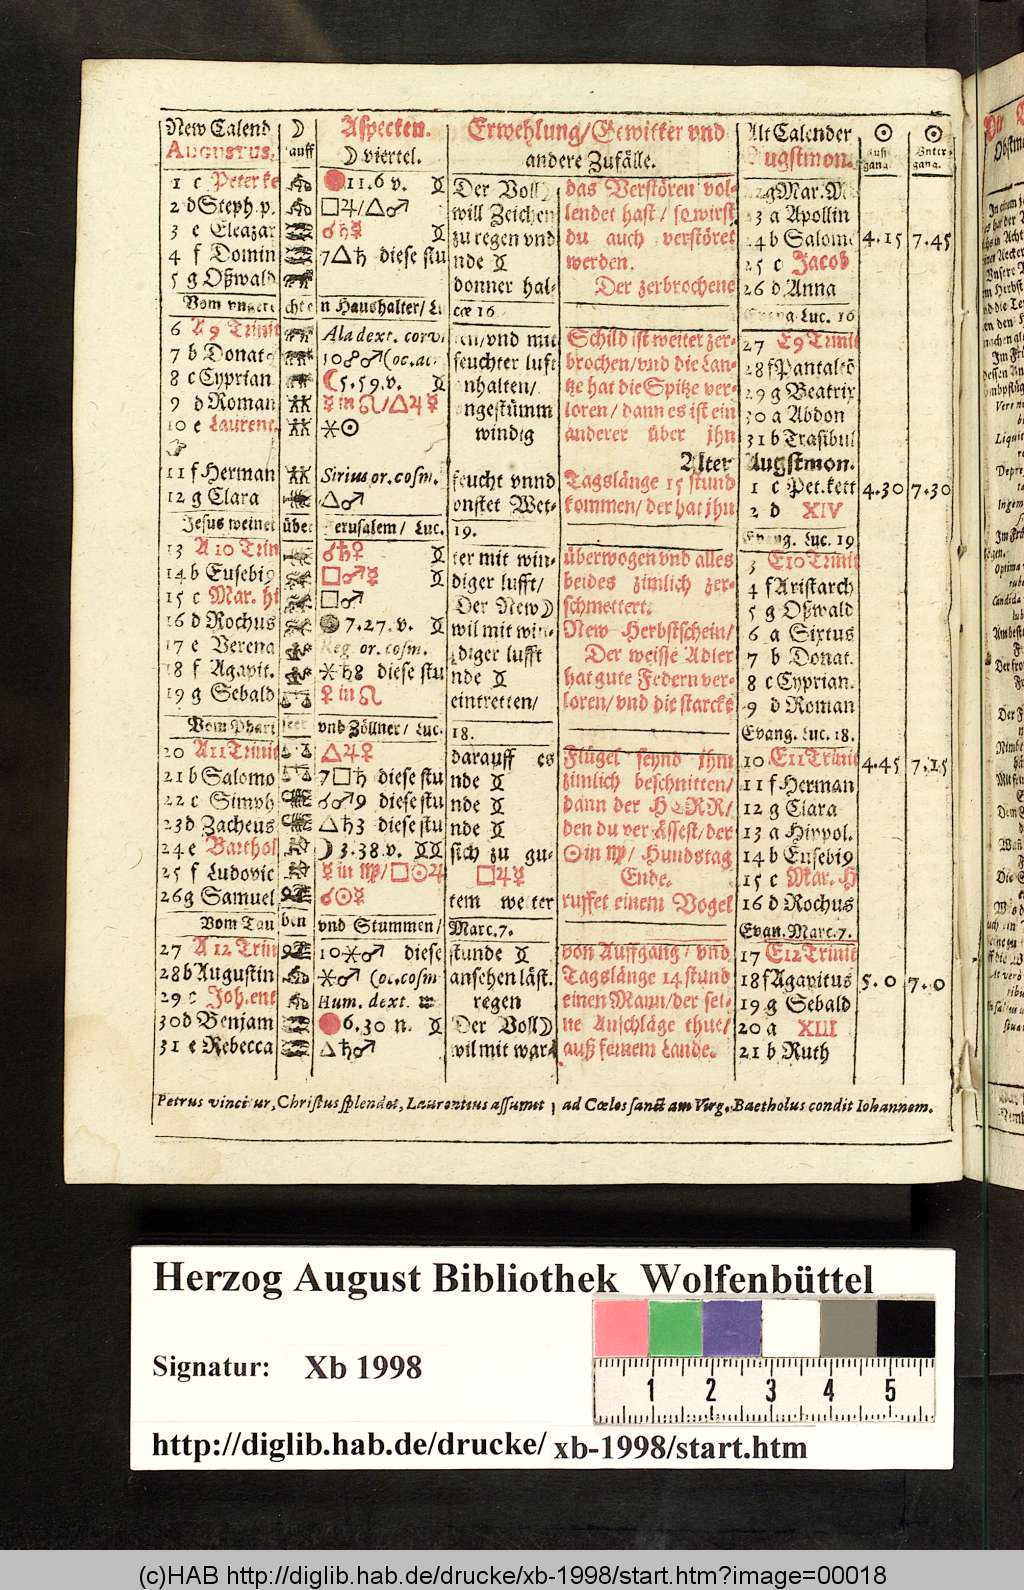 New Calend ☽ Aspecten. Erwehlung/Gewitter vnd Alt Calender ☉ ☉
AUGUSTUS. auff ☽ viertel. andere Zufälle. Augstmon. Auff gang. Vnter- gang.
1 c Peter ke 11.6 v. Der Voll☽ das Verstören vol- Mar.M
2 d Steph.p. □♃/△♂ will Zeichen lendet hast/ so wirst 23 a Apollin
3 e Eleazar ☌♄☿ zu regen vnd du auch verstöret 24 b Salome 4.15 7.45
4 f Domin 7△♄ diese stu nde werden. 25 c Jacob
5 g Oßwald donner hal- Der zerbrochene 26 d Anna
Vom vngere chten Haushalter/ Lu cæ 16 Evang. Luc. 16
6 A 9 Trinit Ala dext. corvi ten/vnd mit Schild ist weiter zer- 27 E9 Trinit
7 b Donat9 10☍♂(oc.ac feuchter luft brochen/vnd die Lan- 28 f Pantaleō
8 c Cyprian ☾5.59.v. anhalten/ tze hat die Spitze ver- 29 g Beatrix
9 d Roman ☿ in ♌/△♃☿ ungestümm loren/ dann es ist ein 30 a Abdon
10 e Laurent. ⚹☉ windig anderer über ihn 31 b Trasibul
Alter Augstmon.
11 f Herman Sirius or.cosm. feucht vnnd Tagslänge 15 stund 1 c Pet.kett 4.30 7.30
12 g Clara △♂ onstet Wet- kommen/ der hat ihn 2 d XIV
Jesus weinet über Jerusalem/ Luc. 19. Evang. Luc. 19
13 A 10 Trin ☌♄♀ ter mit win- überwogen vnd alles 3 E10 Trinit
14 b Eusebi9 □♂☿ diger lufft/ beides zimlich zer- 4 f Aristarch
15 c Mar. hi □♂ Der New☽ schmettert. 5 g Oßwald
16 d Rochus 7.27.v. wil mit win- New Herbstschein/ 6 a Sixtus
17 e Verena Reg or.cosm. diger lufft Der weisse Adler 7 b Donat.
18 f Agapit. ⚹♄8 diese stu nde hat gute Federn ver- 8 c Cyprian.
19 g Sebald ♀ in ♌ eintretten/ loren/ vnd die starcks 9 d Roman
Vom Phari seer vnd Zöllner/ Luc. 18. Evang. Luc. 18.
20 A11 Trinit △♃♀ darauff es Flügel seynd ihm 10 E11 Trinit 4.45 7.15
21 b Salomo 7□♄ diese stu nde zimlich beschnitten/ 11 f Herman
22 c Simph ☌♂9 diese stu nde dann der HERR/ 12 g Clara
23 d Zacheus △♄3 diese stu nde den du verlässest/ der 13 a Hippol.
24 e Barthol ☽3.38.v. sich zu gu- ☉ in ♍/ Hundstag 14 b Eusebi9
25 f Ludovic ☿ in ♍/□☉♃ □♃☿ Ende. 15 c Mar. H
26 g Samuel ☌☉☿ tem wetter ruffet einem Vogel 16 d Rochus
Vom Tau ben vnd Stummen/ Marc.7. Evan. Marc.7.
27 A 12 Trin 10⚹♂ diese stunde von Auffgang/ vnd 17 E12 Trinit
28 b Augustin ⚹♂ (oc.cosm ansehen läst. Tagslänge 14 stund 18 f Agapitus 5.0 7.0
29 c Joh.ent Hum. dext. ♒ regen einen Mann/der sei- 19 g Sebald
30 d Benjam 6.30 n. Der Voll☽ ne Anschläge thut/ 20 a XIII
31 e Rebecca △♄♂ wil mit war- auß fernem Lande. 21 b Ruth
Petrus vincitur, Christus splendet, Laurentius assumit, ad Cœlos sanctam Virg. Baetholus condit Iohannem.
Herzog August Bibliothek Wolfenbüttel
Signatur: Xb 1998
1 2 3 4 5
http://diglib.hab.de/drucke/ xb-1998/start.htm
(c)HAB http://diglib.hab.de/drucke/xb-1998/start.htm?image=00018